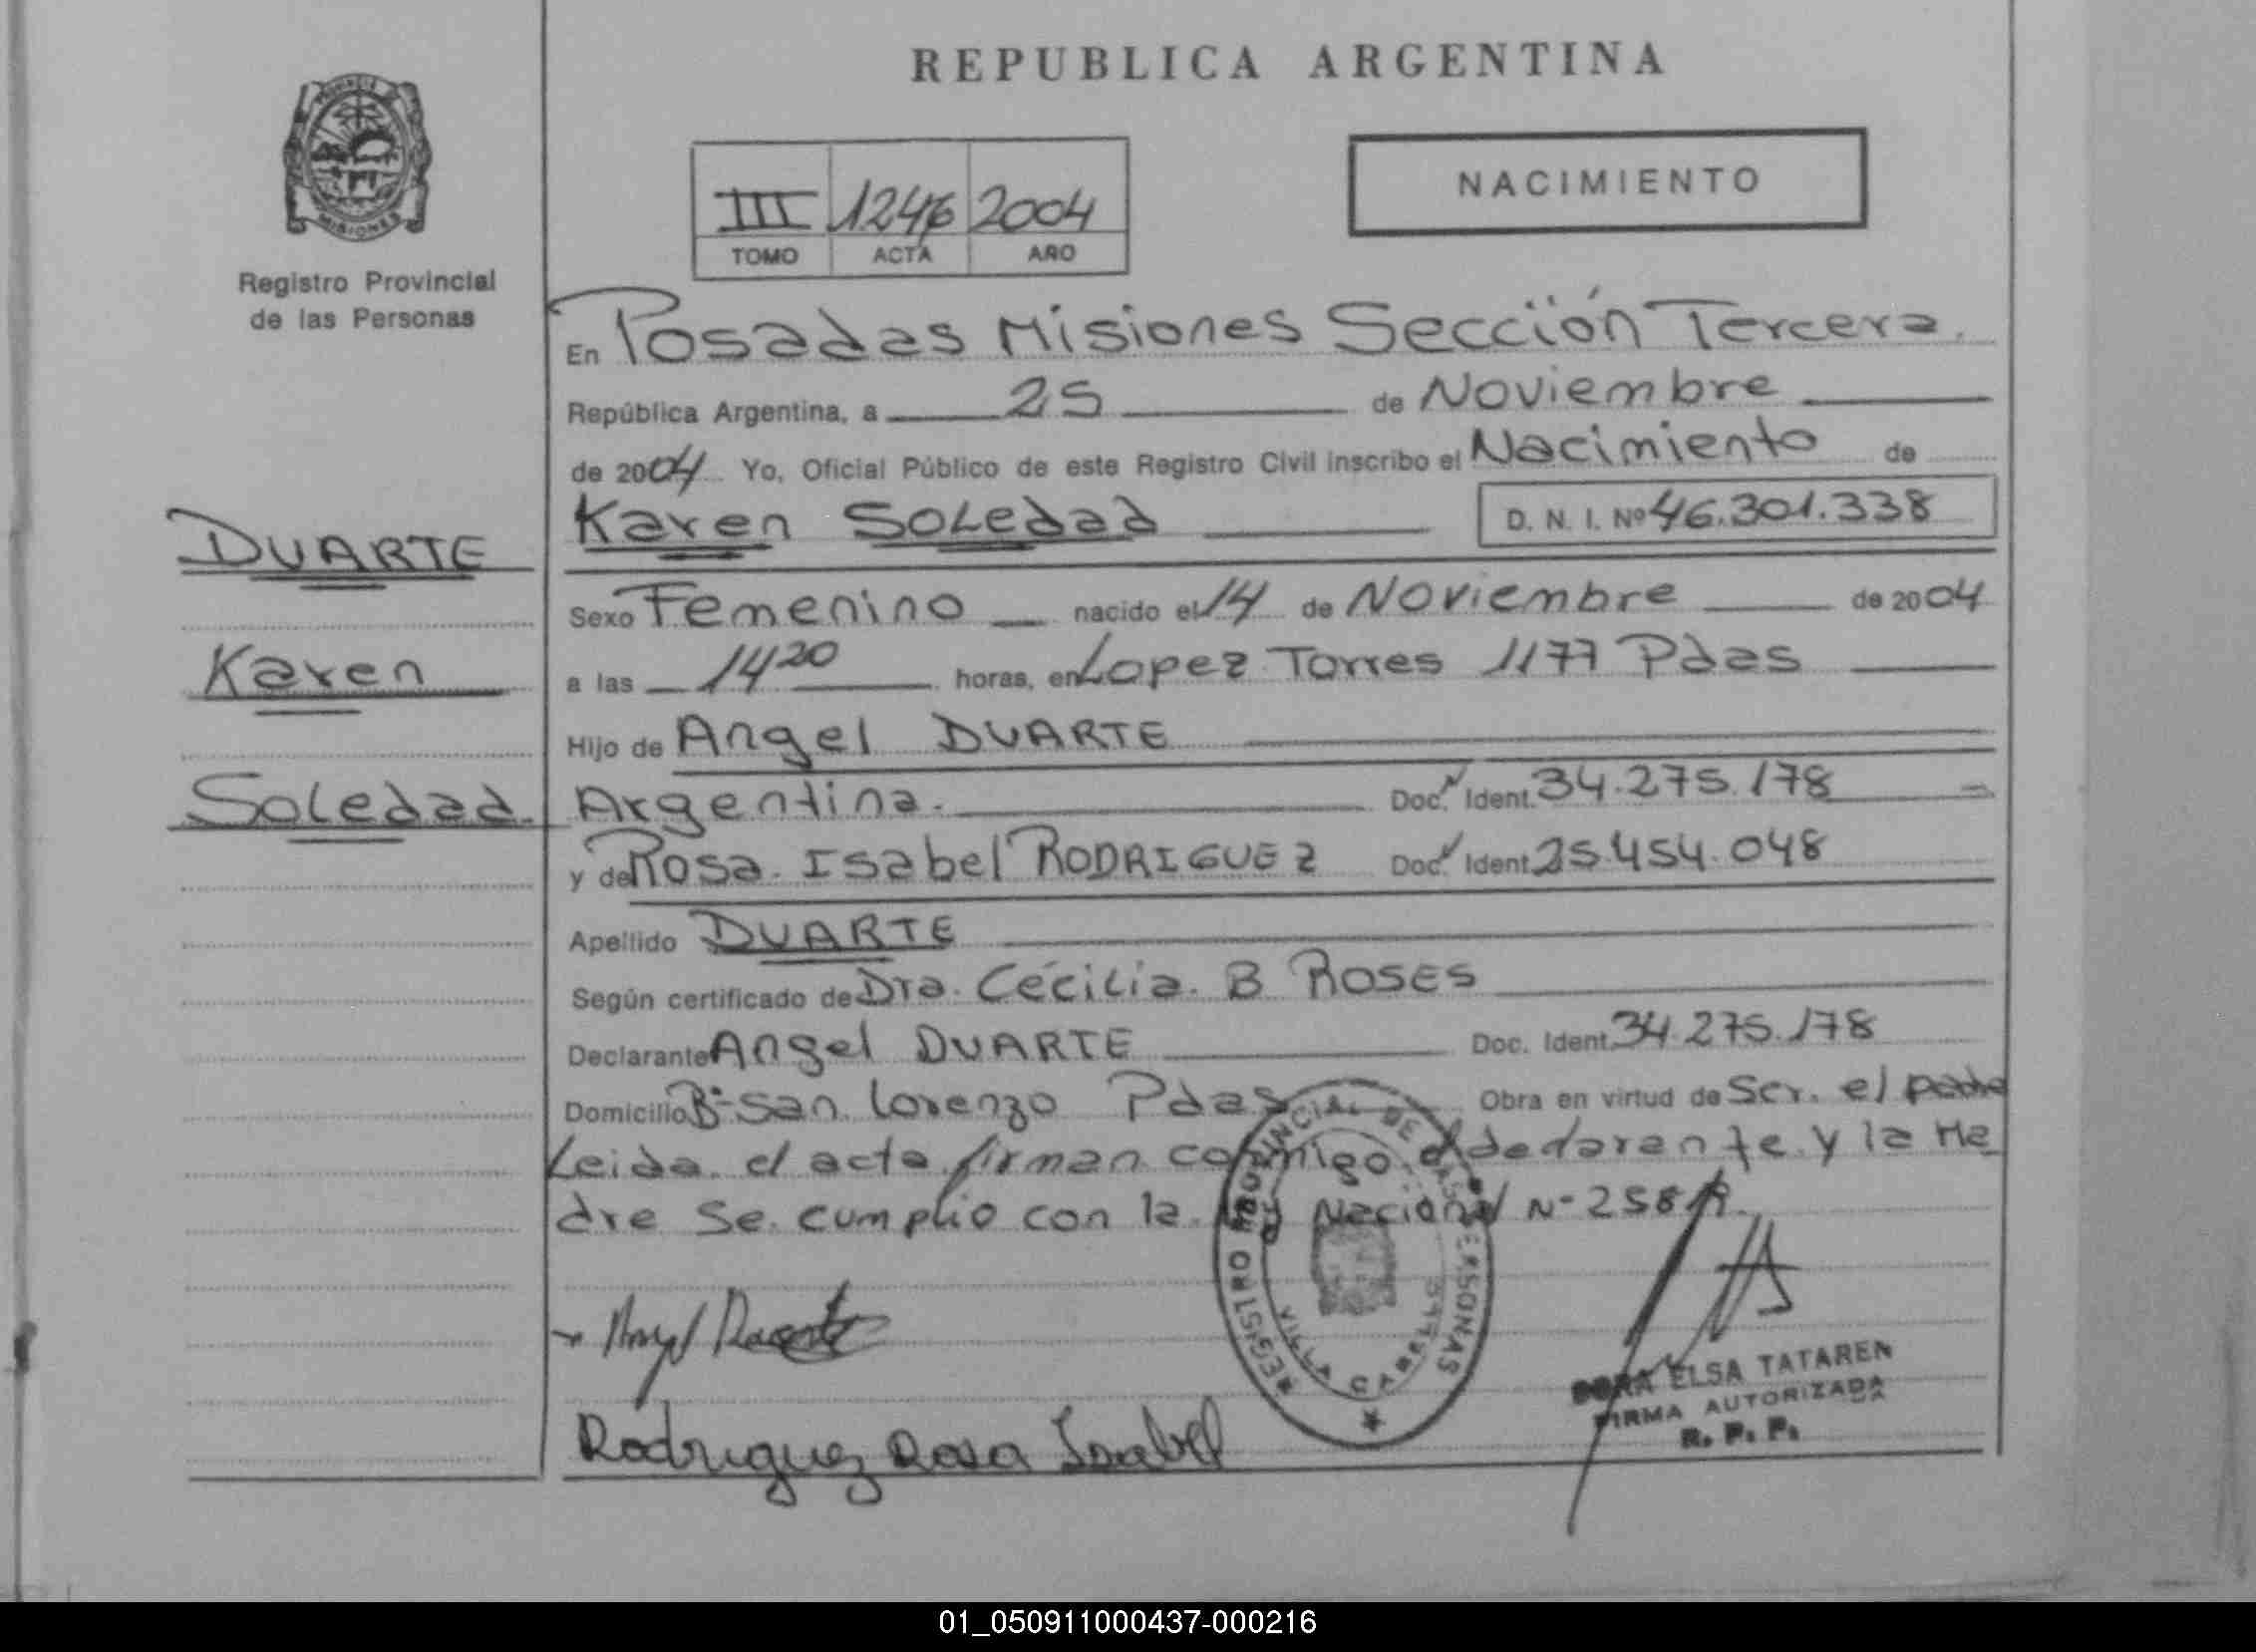 REPUBLICA ARGENTINA
PROVINCIA DE
MISIONES
Registro Provincial
de las Personas
III 1246 2004
TOMO ACTA AÑO
NACIMIENTO
En Posadas Misiones Sección Tercera.
República Argentina, a 25 de Noviembre
de 2004 Yo, Oficial Público de este Registro Civil inscribo el Nacimiento de
Karen Soledad D. N. I. Nº 46.301.338
DUARTE
Karen
Soledad
Sexo Femenino nacido el 14 de Noviembre de 2004
a las 14 20 horas, en Lopez Torres 1177 Pdas
Hijo de Angel DUARTE
Argentina. Doc. Ident. 34.275.178
y de Rosa Isabel RODRIGUEZ Doc. Ident. 25.454.048
Apellido DUARTE
Según certificado de Dra. Cecilia B ROSES
Declarante Angel DUARTE Doc. Ident. 34.275.178
Domicilio Bº San Lorenzo Pdas Obra en virtud de Ser el padre
Leida el acta firman conmigo el declarante y la Ma
dre Se cumplio con la Ley Nacional Nº
REGISTRO PROVINCIAL DE LAS PERSONAS
VILLA CABELLO
Angel Duarte
Rodriguez Rosa Isabel
ELSA TATAREN
FIRMA AUTORIZADA
R. P. P.
01_050911000437-000216